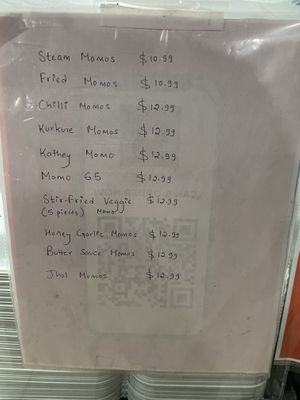 Steam Momos $10.99
Fried Momos $10.99
Chilli Momos $12.99
Kurkure Momos $12.99
Kothey Momo $12.99
Momo 65 $12.99
Stir-Fried Veggie $12.99
(5 pieces) Momo
Honey Garlic Momos $12.99
Butter Sauce Momos $12.99
Jhol Momos $12.99